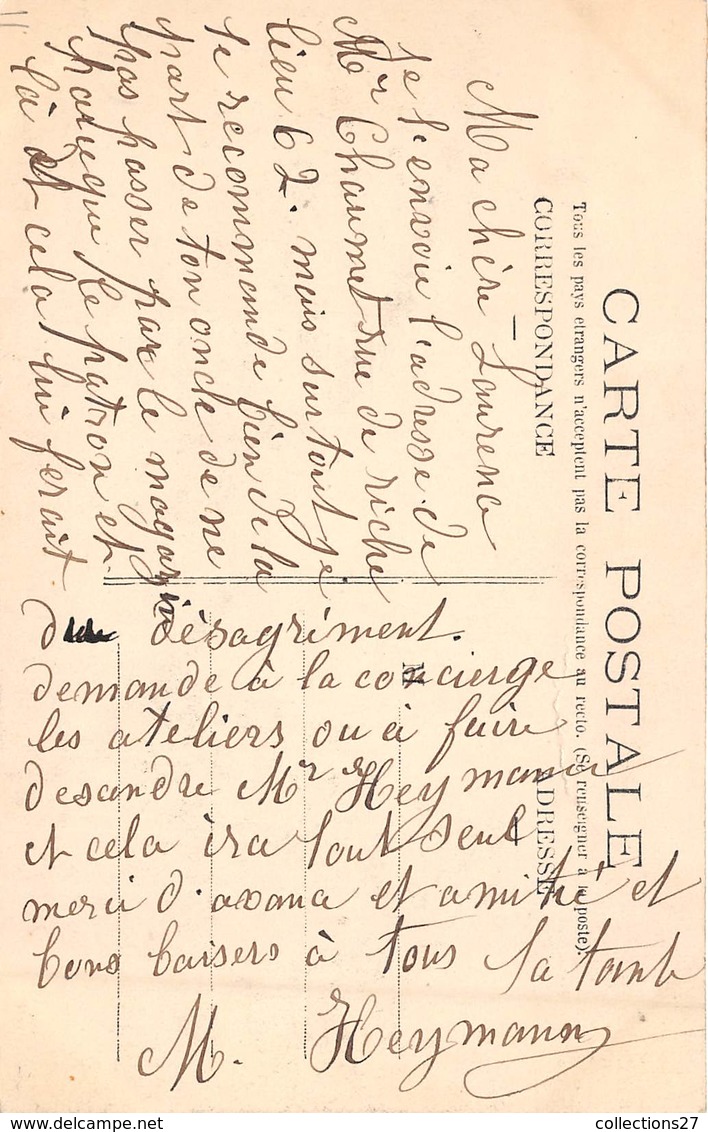 CARTE POSTALE
Tous les pays étrangers n'acceptent pas la correspondance au recto. (Se renseigner à la poste).
CORRESPONDANCE
ADRESSE
M
Ma chère Laurence
je t'envoie l'adresse de
Mr Chaumet rue de riche
lieu 62. mais surtout je
te recommande bien de la
part de ton oncle de ne
pas passer par le magazin
parceque le patron et
là et cela lui ferait
du désagriment.
demande à la concierge
les ateliers ou à faire
desandre Mr Heymann
et cela ira tout seul
merci d'avana et amitié et
bons baisers à tous ta tante
M. Heymann
collections27